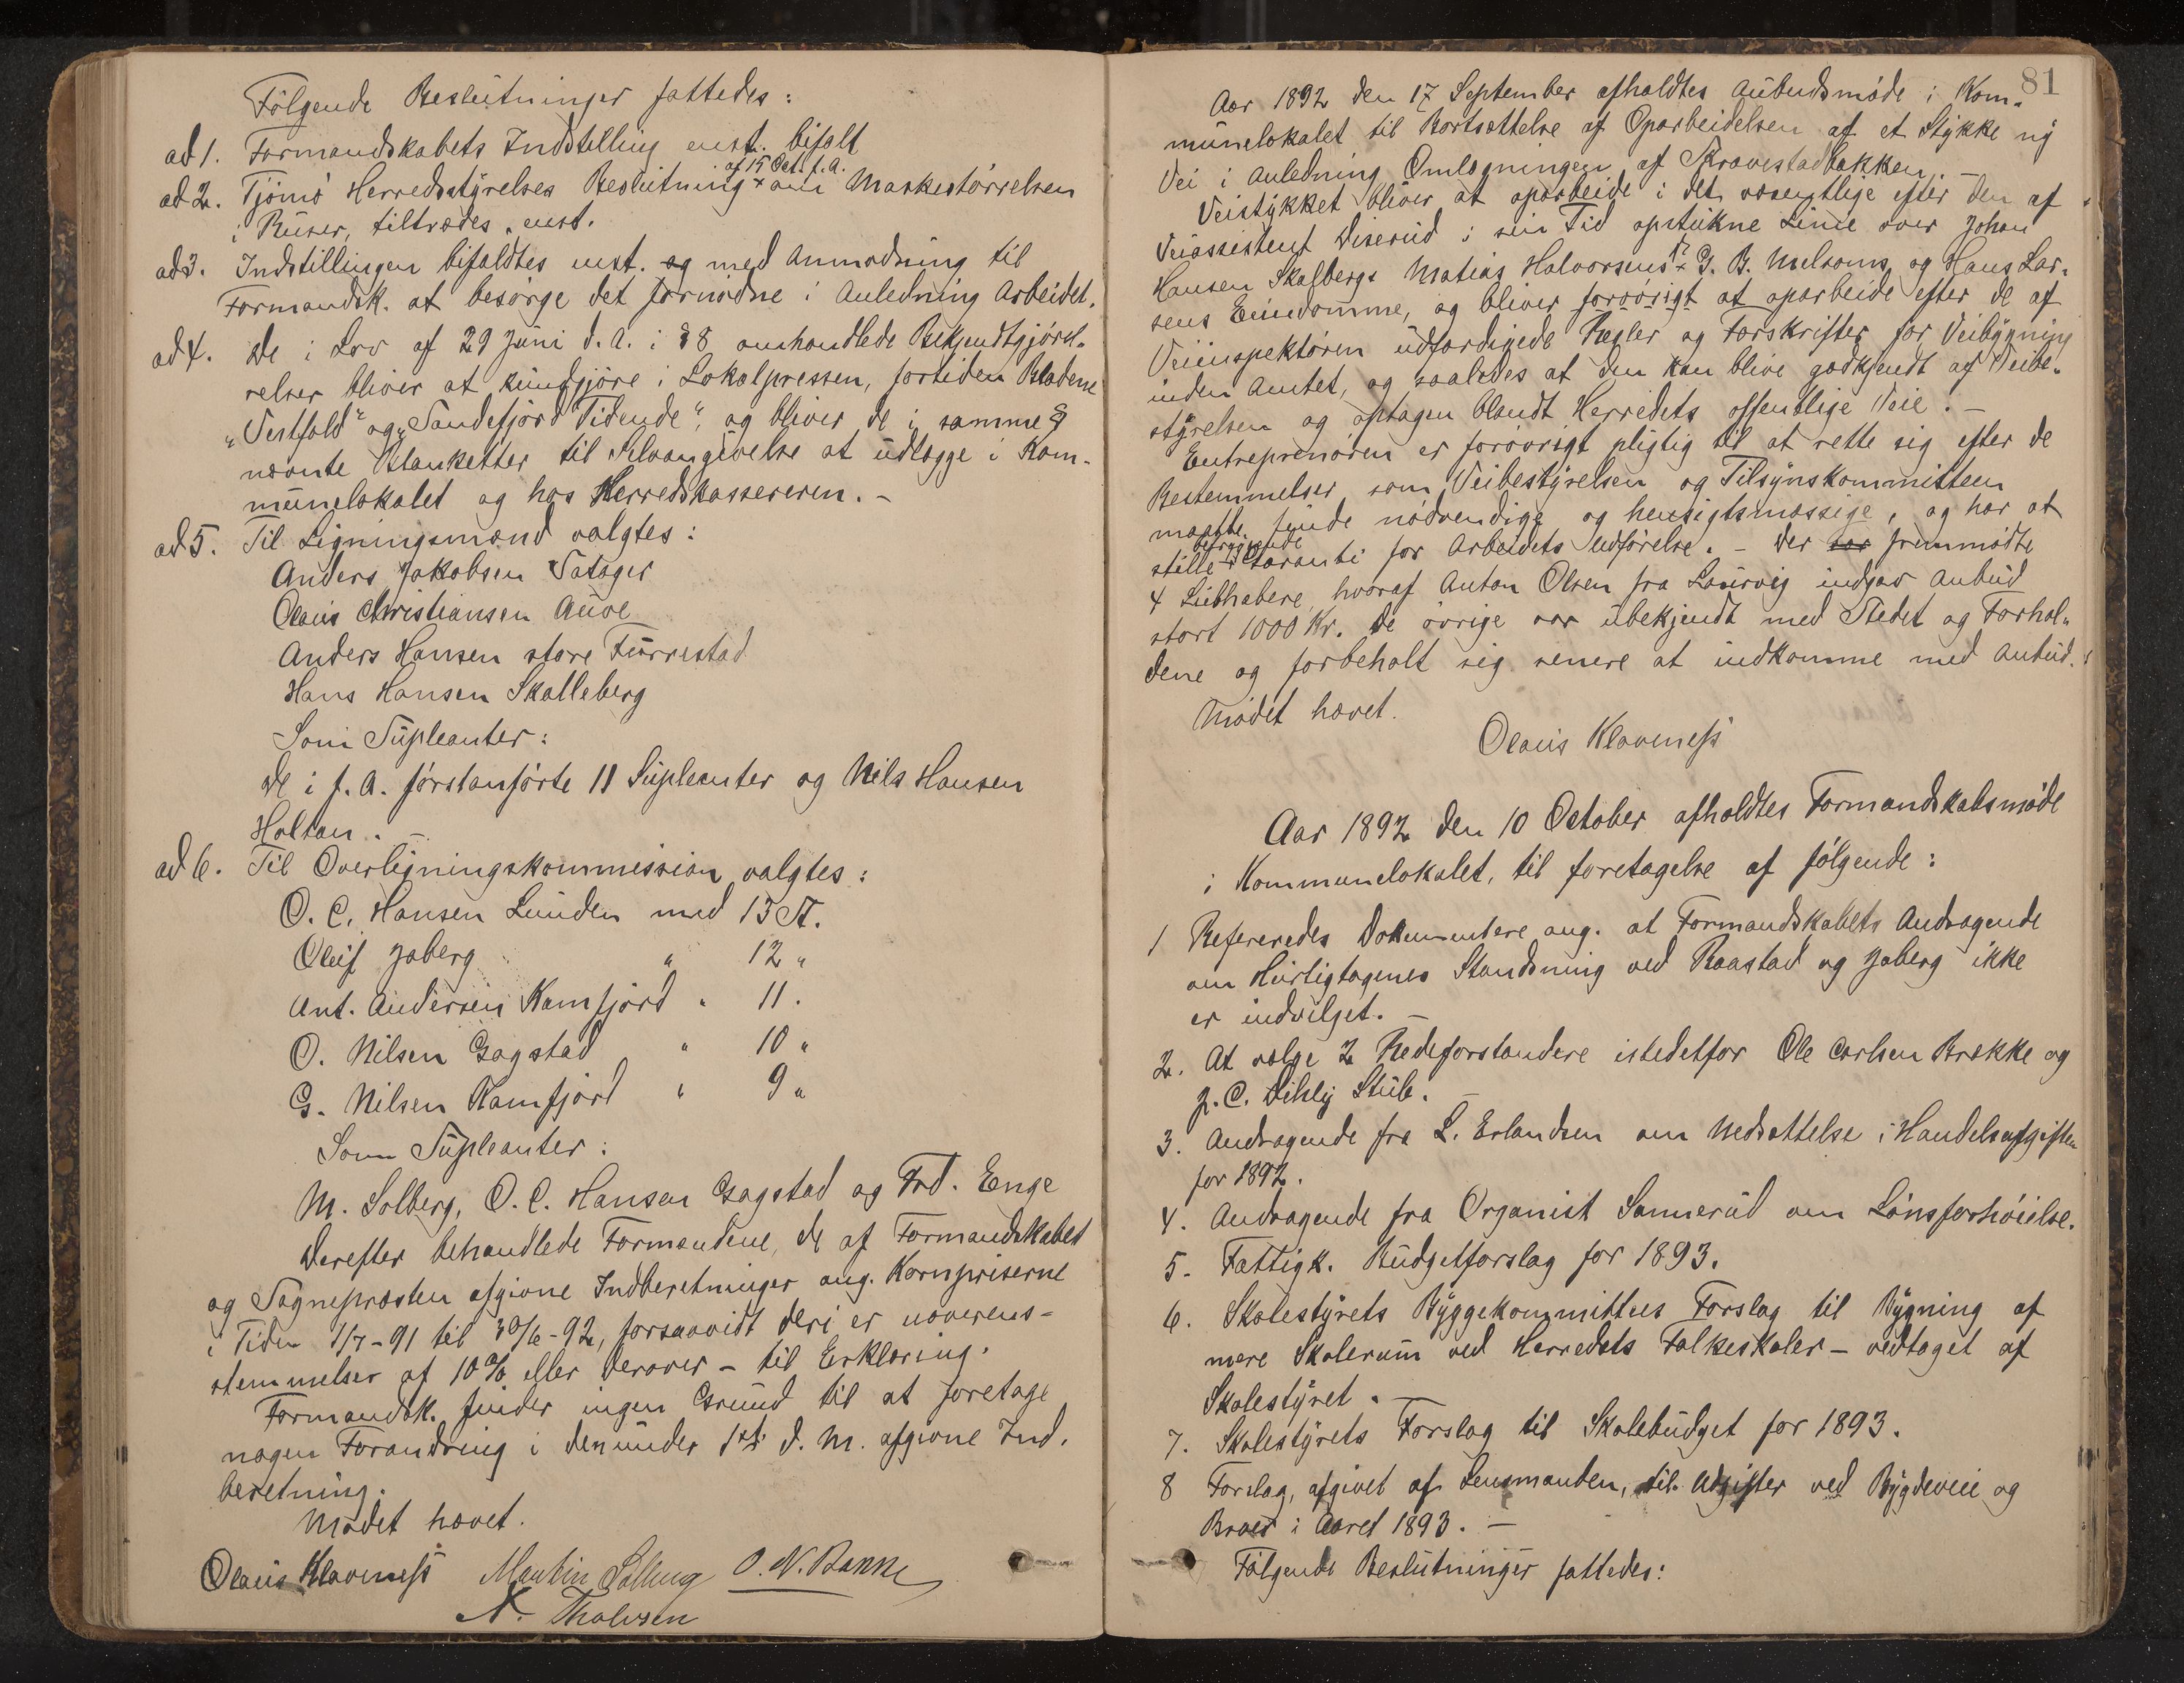 Følgende Beslutninger fattedes:
ad 1. Formandskabets Indstilling enst. bifalt
ad 2. Tjømø Herredsstyrelses Beslutning × af 15 Oct. f. A. om Maskestørrelsen
i Ruser, tiltrædes enst.
ad 3. Indstillingen bifaldtes enst. og med Anmodning til
Formandsk. at besørge det fornødne i Anledning Arbeidet.
ad 4. De i Lov af 29 Juni d. A. i § 8 omhandlede Bekjendtgjørel-
relser bliver at kundgjøre i Lokalpressen, fortiden Bladene
„Vestfold" og „Sandefjord Tidende", og bliver de i samme §
nævnte Blanketter til Selvangivelse at udlægge i Kom-
munelokalet og hos Herredskassereren. –
ad 5. Til Ligningsmænd valgtes:
Anders Jakobsen Satager
Olaus Christiansen Auve
Anders Hansen store Furrestad
Hans Hansen Skalleberg
Som Supleanter:
De i f. A. førstanførte 11 Supleanter og Nils Hansen
Haltan. –
ad 6. Til Overligningskommission valgtes:
O. C. Hansen Lunden med 13 St.
Oluf Jaberg " 12 "
Ant. Andersen Kamfjord " 11.
O. Nilsen Gogstad " 10 "
G. Nilsen Kamfjord " 9 "
Som Supleanter:
M. Solberg, O. C. Hansen Gogstad og Frd. Enge
Derefter behandlede Formændene, de af Formandskabet
og Sognepræsten afgivne Indberetninger ang. Kornpriserne
i Tiden 1/7-91 til 30/6-92, forsaavidt deri er uoverens-
stemmelser af 10 % eller derover – til Erklæring.
Formandsk. finder ingen Grund til at foretage
nogen Forandring i den under 1ste d. M. afgivne Ind-
beretning.
Mødet hævet.
Olaus Klaveness Martin Solberg O. N. Bakke
N. Thalvsen
81
Aar 1892 den 17 September afholdtes Anbudsmøde i Kom-
munelokalet til Bortsættelse af Oparbeidelsen af et Stykke ny
Vei i Anledning Omlægningen af Skravestadbakken. –
Veistykket bliver at oparbeide i det væsentlige efter den af
Veiassistent Diserud i sin Tid opstukne Linie over Johan
Hansen Skalbergs Matias Halvorsens × G. B. Melsoms og Hans Lar-
sens Eiendomme, og bliver forøvrigt at oparbeide efter de af
Veiinspektøren udfærdigede Regler og Forskrifter for Veibygning
inden Amtet, og saaledes at den kan blive godkjendt af Veibe-
styrelsen og optagen blandt Herredets offentlige Veie. –
Entreprenøren er forøvrigt pligtig til at rette sig efter de
Bestemmelser som Veibestyrelsen og Tilsynskommitteen
maatte finde nødvendige og hensigtsmæssige, og har at
stille betryggende Garanti for Arbeidets Udførelse. – Der var fremmødte
4 Liebhabere, hvoraf Anton Olsen fra Laurvig indgav Anbud
stort 1000 Kr. De øvrige var ubekjendt med Stedet og Forhol-
dene og forbeholt sig senere at indkomme med Anbud.
Mødet hævet.
Olaus Klaveness
Aar 1892 den 10 October afholdtes Formandskabsmøde
i Kommunelokalet, til foretagelse af følgende:
1 Refereredes Dokumentere ang. at Formandskabets Andragende
om Hurtigtogenes Standsning ved Raastad og Jaberg ikke
er indvilget. –
2. At vælge 2 Rodeforstandere istedetfor Ole Carlsen Brekke og
J. C. Dihly Stub. –
3. Andragende fra L. Erlandsen om Nedsættelse i Handelsafgiften
for 1892.
4. Andragende fra Organist Sannerud om Lønsforhøielse.
5. Fattigk. Budgetforslag for 1893.
6. Skolestyrets Byggekommittees Forslag til Bygning af
mere Skolerum ved Herredets Folkeskoler – vedtaget af
Skolestyret. –
7. Skolestyrets Forslag til Skolebudget for 1893.
8 Forslag, afgivet af Lensmanden, til Udgifter ved Bygdeveie og
Broer i Aaret 1893. –
Følgende Beslutninger fattedes: